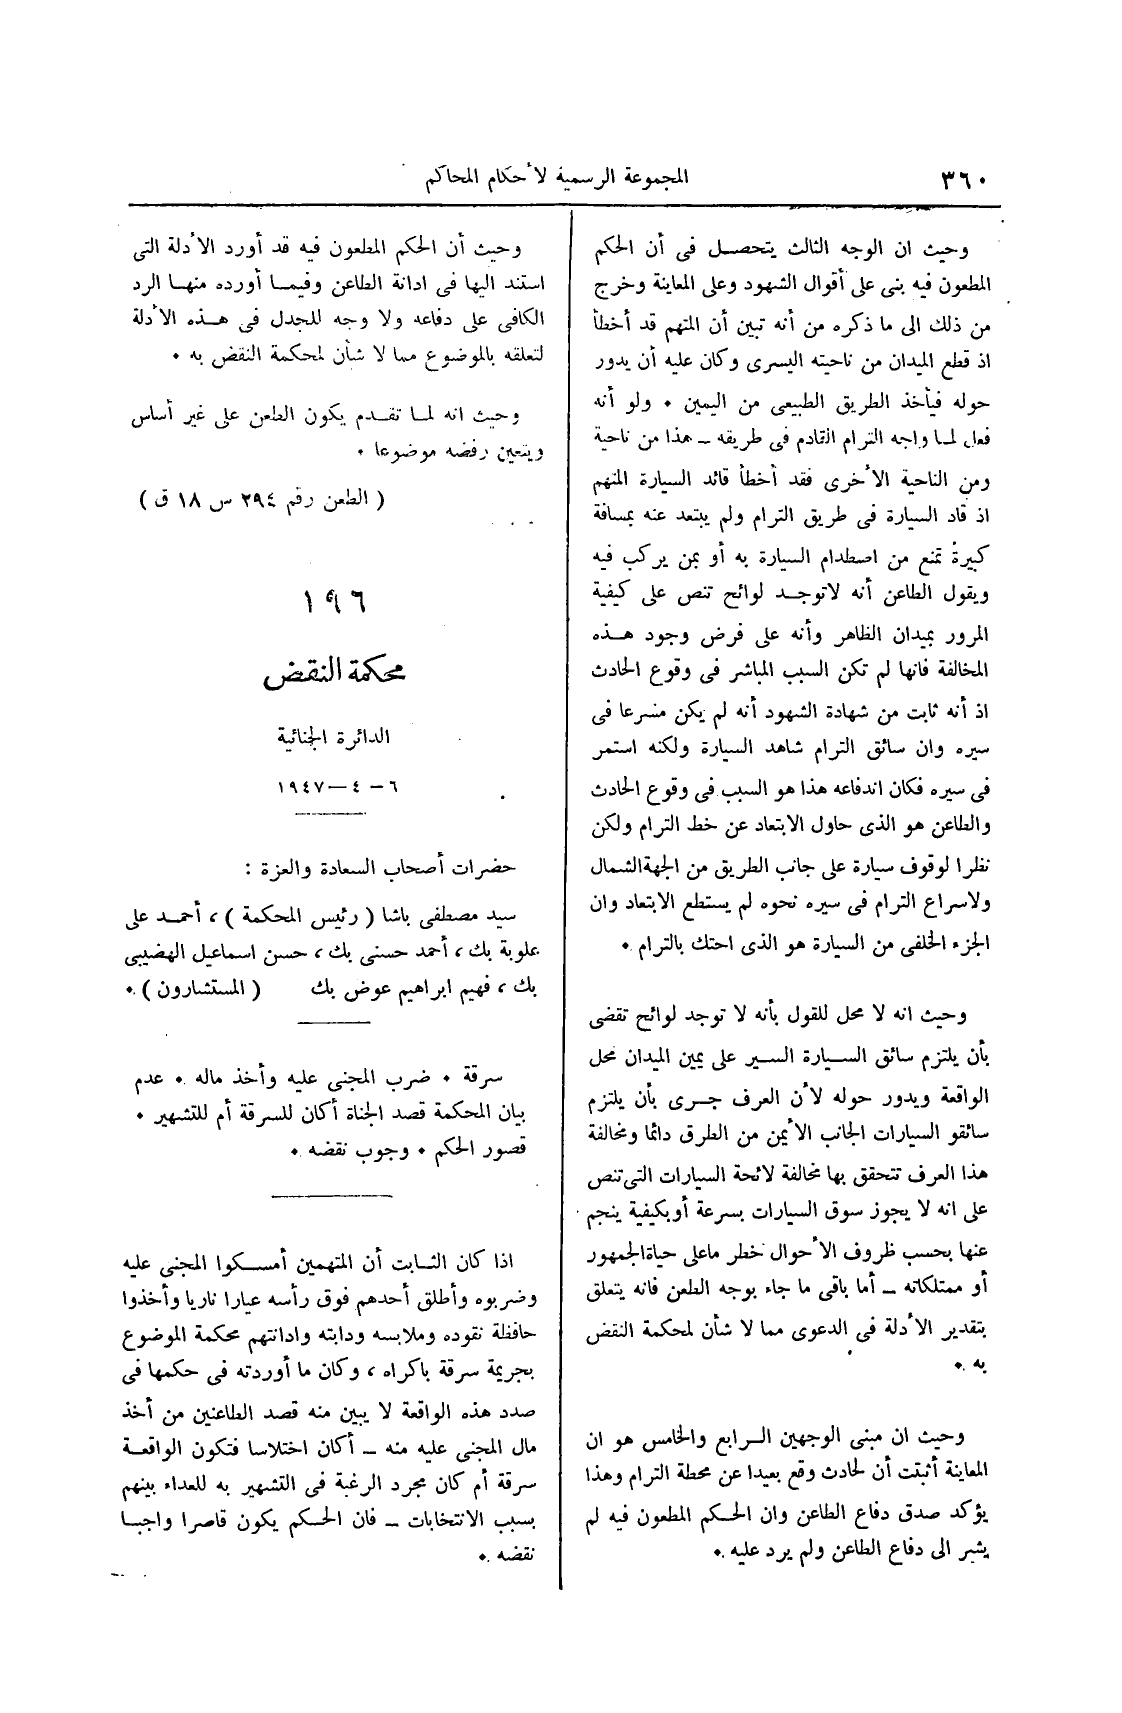 ٣٦٠
المجموعة الرسمية لأحكام المحاكم
وحيث ان الوجه الثالث يتحصل فى أن الحكم
المطعون فيه بنى على أقوال الشهود وعلى المعاينة وخرج
من ذلك الى ما ذكره من أنه تبين أن المتهم قد أخطأ
اذ قطع الميدان من ناحيته اليسرى وكان عليه أن يدور
حوله فيأخذ الطريق الطبيعى من اليمين ٠ ولو أنه
فعل لما واجه الترام القادم فى طريقه ــ هذا من ناحية
ومن الناحية الأخرى فقد أخطأ قائد السيارة المتهم
اذ قاد السيارة فى طريق الترام ولم يبتعد عنه بمسافة
كبيرة تمنع من اصطدام السيارة به أو بمن يركب فيه
ويقول الطاعن أنه لاتوجد لوائح تنص على كيفية
المرور بميدان الظاهر وأنه على فرض وجود هذه
المخالفة فانها لم تكن السبب المباشر فى وقوع الحادث
اذ أنه ثابت من شهادة الشهود أنه لم يكن مسرعا فى
سيره وان سائق الترام شاهد السيارة ولكنه استمر
فى سيره فكان اندفاعه هذا هو السبب فى وقوع الحادث
والطاعن هو الذى حاول الابتعاد عن خط الترام ولكن
نظرا لوقوف سيارة على جانب الطريق من الجهةالشمال
ولاسراع الترام فى سيره نحوه لم يستطع الابتعاد وان
الجزء الخلفى من السيارة هو الذى احتك بالترام ٠
وحيث انه لا محل للقول بأنه لا توجد لوائح تقضى
بأن يلتزم سائق السيارة السير على يمين الميدان محل
الواقعة ويدور حوله لأن العرف جرى بأن يلتزم
سائقو السيارات الجانب الأيمن من الطرق دائما ومخالفة
هذا العرف تتحقق بها مخالفة لائحة السيارات التى تنص
على انه لا يجوز سوق السيارات بسرعة أوبكيفية ينجم
عنها بحسب ظروف الأحوال خطر ماعلى حياةالجمهور
أو ممتلكاته ــ أما باقى ما جاء بوجه الطعن فانه يتعلق
بتقدير الأدلة فى الدعوى مما لا شأن لمحكمة النقض
به ٠
وحيث ان مبنى الوجهين الرابع والخامس هو ان
المعاينة أثبتت أن لحادث وقع بعيدا عن محطة الترام وهذا
يؤكد صدق دفاع الطاعن وان الحكم المطعون فيه لم
يشر الى دفاع الطاعن ولم يرد عليه ٠
وحيث أن الحكم المطعون فيه قد أورد الأدلة التى
استند اليها فى ادانة الطاعن وفيما أورده منها الرد
الكافى على دفاعه ولا وجه للجدل فى هذه الأدلة
لتعلقه بالموضوع مما لا شأن لمحكمة النقض به ٠
وحيث انه لما تقدم يكون الطعن على غير أساس
ويتعين رفضه موضوعا ٠
( الطعن رقم ٢٩٤ س ١٨ ق )
١٩٦
محكمة النقض
الدائرة الجنائية
٦ – ٤ – ١٩٤٧
حضرات أصحاب السعادة والعزة :
سيد مصطفى باشا ( رئيس المحكمة ) ، أحمد على
علوبة بك ، أحمد حسنى بك ، حسن اسماعيل الهضيبى
بك ، فهيم ابراهيم عوض بك ( المستشارون ) ٠
سرقة ٠ ضرب المجنى عليه وأخذ ماله ٠ عدم
بيان المحكمة قصد الجناة أكان للسرقة أم للتشهير ٠
قصور الحكم ٠ وجوب نقضه ٠
اذا كان الثابت أن المتهمين أمسكوا المجنى عليه
وضربوه وأطلق أحدهم فوق رأسه عيارا ناريا وأخذوا
حافظة نقوده وملابسه ودابته وادانتهم محكمة الموضوع
بجريمة سرقة باكراه ، وكان ما أوردته فى حكمها فى
صدد هذه الواقعة لا يبين منه قصد الطاعنين من أخذ
مال المجنى عليه منه ــ أكان اختلاسا فتكون الواقعة
سرقة أم كان مجرد الرغبة فى التشهير به للعداء بينهم
بسبب الانتخابات ــ فان الحكم يكون قاصرا واجبا
نقضه ٠